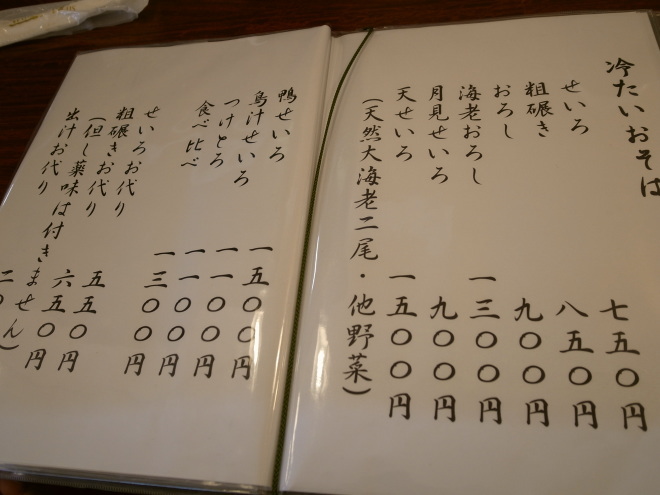 冷たいおそば
せいろ 七五〇円
粗碾き 八五〇円
おろし 九〇〇円
海老おろし 一三〇〇円
月見せいろ 九〇〇円
天せいろ 一五〇〇円
(天然大海老二尾・他野菜)
鴨せいろ 一五〇〇円
鳥汁せいろ 一一〇〇円
つけとろ 一一〇〇円
食べ比べ 一三〇〇円
せいろお代り 五五〇円
粗碾きお代り 六五〇円
(但し薬味は付きません)
出汁お代り 二〇